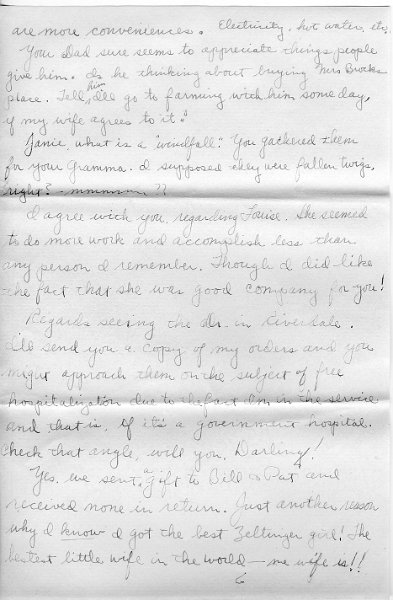 are more conveniences. Electricity, hot water, etc.
Your Dad sure seems to appreciate things people
give him. Is he thinking about buying Mrs Brocks
place. Tell him I'll go to farming with him some day,
if my wife agrees to it."
Janie, what is a "windfall." You gathered them
for your Gramma. I supposed they were fallen twigs,
right? - mmmmmm ??
I agree with you regarding Louise. She seemed
to do more work and accomplish less than
any person I remember. Though I did like
the fact that she was good company for you!
Regards seeing the dr. in Riverdale.
I'll send you a copy of my orders and you
might approach them on the subject of free
hospitalization due to the fact I'm in the service
and that is, if it's a government hospital.
Check that angle, will you, Darling!
Yes, we sent a gift to Bill & Pat and
received none in return. Just another reason
why I know I got the best Zeltinger girl! The
bestest little wife in the world — me wife is!!
6